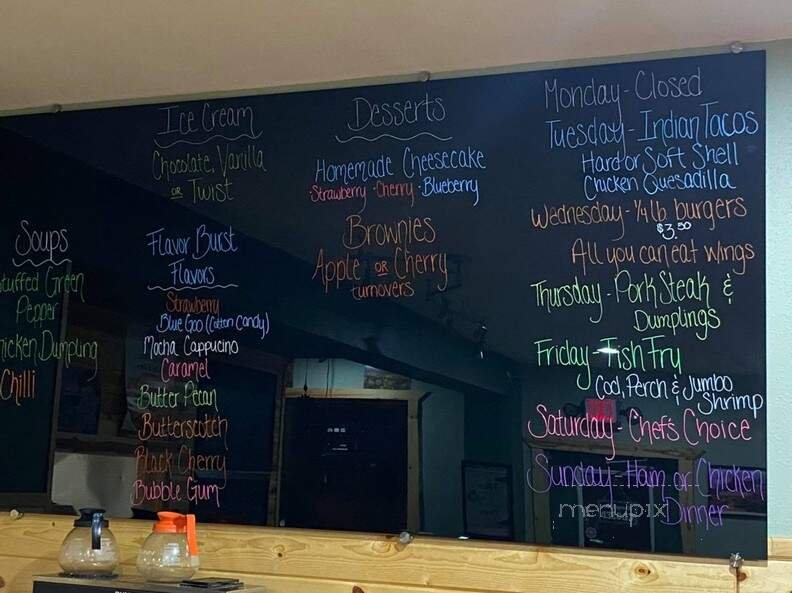 Soups
Stuffed Green
Pepper
Chicken Dumpling
Chilli
Ice Cream
Chocolate, Vanilla
or Twist
Flavor Burst
Flavors
Strawberry
Blue Goo (Cotton Candy)
Mocha Cappucino
Caramel
Butter Pecan
Butterscotch
Black Cherry
Bubble Gum
Desserts
Homemade Cheesecake
·Strawberry ·Cherry ·Blueberry
Brownies
Apple or Cherry
turnovers
Monday - Closed
Tuesday - Indian Tacos
Hard or Soft Shell
Chicken Quesadilla
Wednesday - 1/4 lb burgers
$3.50
All you can eat wings
Thursday - Pork Steak &
Dumplings
Friday - Fish Fry
Cod, Perch & Jumbo
Shrimp
Saturday - Chef's Choice
Sunday - Ham or Chicken
Dinner
menupix